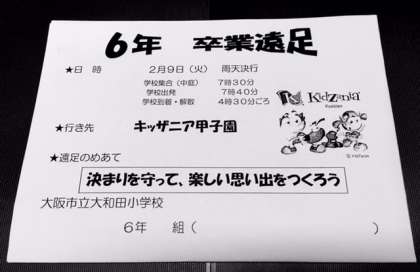 6年 卒業遠足
★日 時 2月9日（火） 雨天決行
学校集合（中庭） 7時30分
学校出発 7時40分
学校到着・解散 4時30分ごろ
KidZania
★行き先 キッザニア甲子園
★遠足のめあて
決まりを守って、楽しい思い出をつくろう
大阪市立大和田小学校
6年 組（ ）